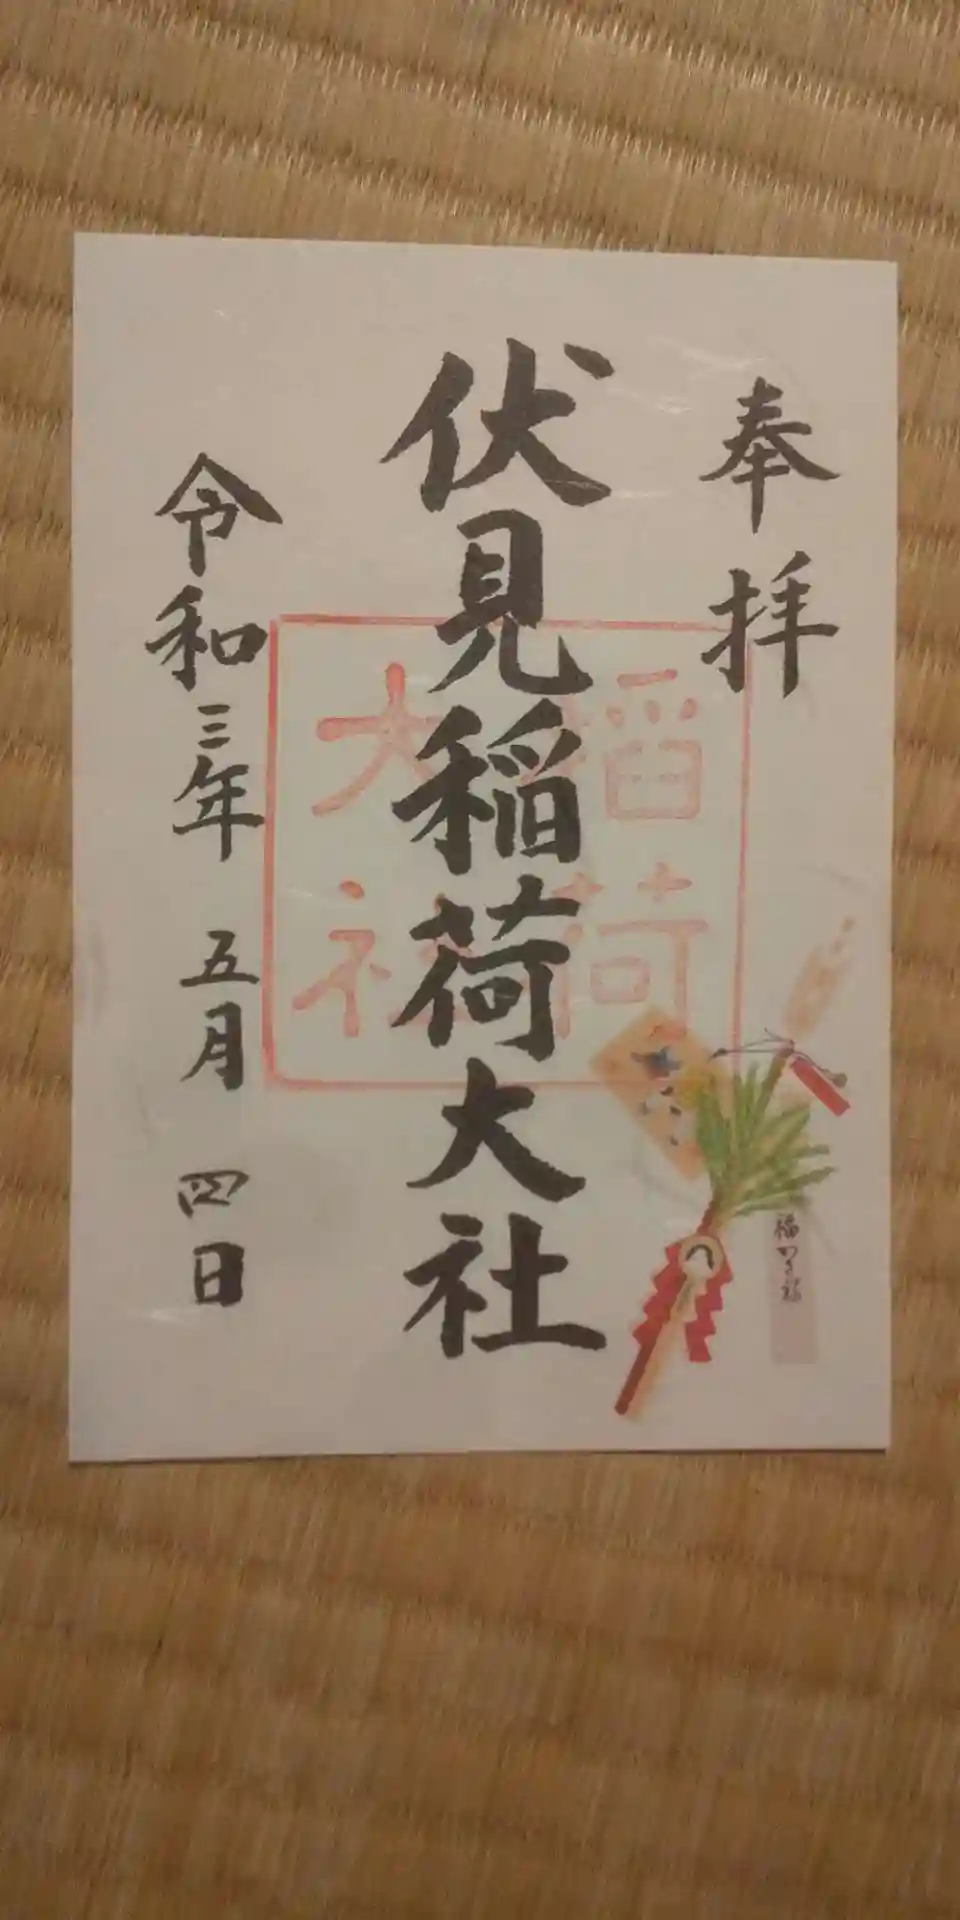 奉拝
伏見稲荷大社
令和三年 五月 四日
稲荷
大社